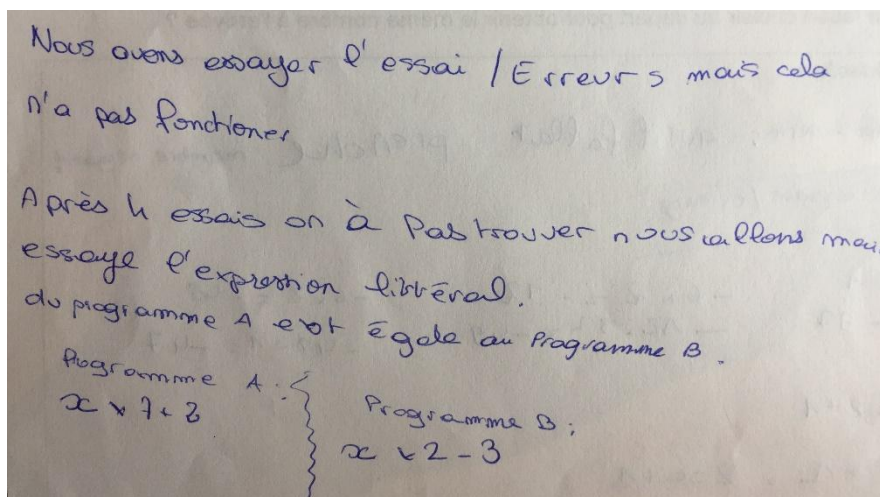 Nous avons essayer l'essai / Erreurs mais cela
n'a pas fonctioner
Après 4 essais on à Pas trouver nous allons
essaye l'expression littéral.
du programme A est égale au Programme B.
Programme A :
x × 7 +
Programme B :
x × 2 - 3